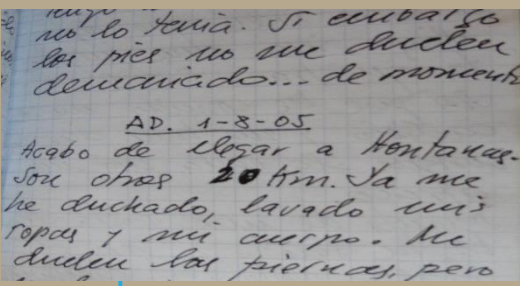 no lo tenía. Si embalgo
los pies no me duelen
demaciado... de momento
AD. 1-8-05
Acabo de llegar a Hontanas.
Son otros 20 Km. Ya me
he duchado, lavado mis
ropas y mi cuerpo. Me
duelen las piernas, pero